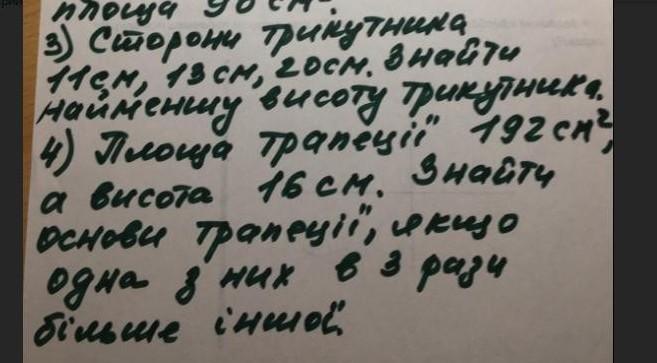 площа 96 см².
3) Сторони трикутника
11см, 13см, 20см. Знайти
найменшу висоту трикутника.
4) Площа трапеції 192 см²,
а висота 16 см. Знайти
основи трапеції, якщо
одна з них в 3 рази
більше іншої.